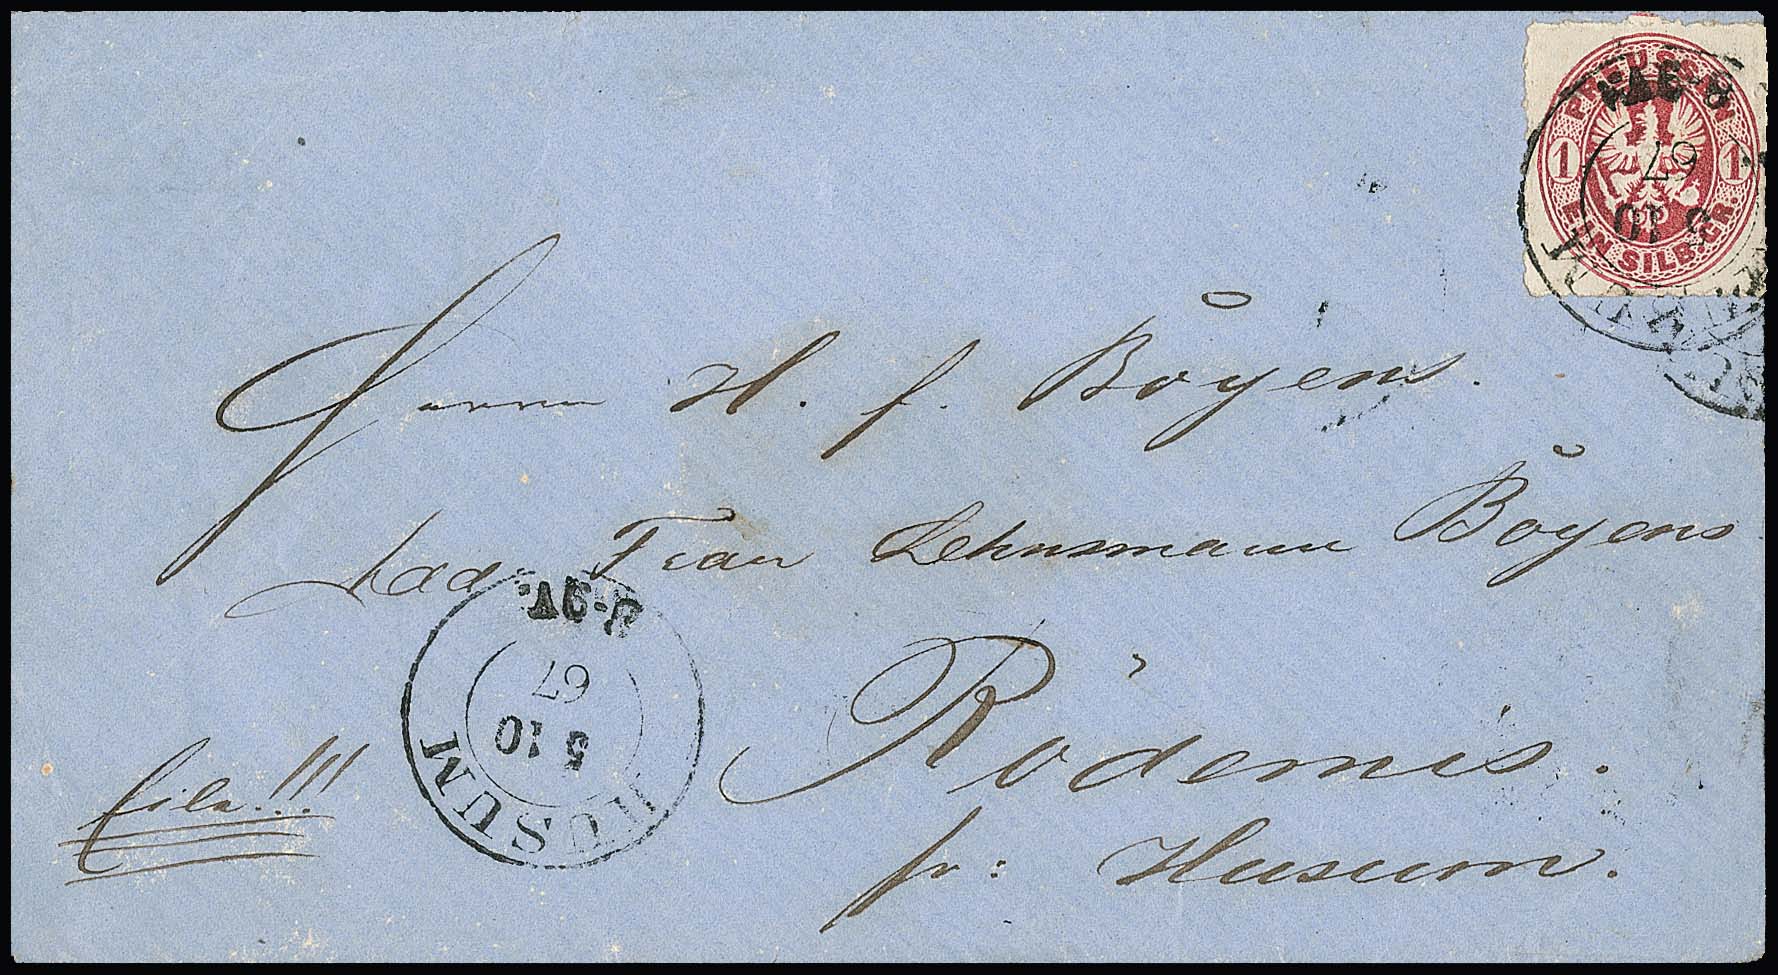 PREUSSEN
1 1
EIN SILB.GR.
67
5 10
HUSUM
Herrn H. J. Böyens.
Adr Frau Lehnsmann Böyens
Rödemis.
pr: Husum.
Eile.!!!
HUSUM
5 10
67
8-9V.